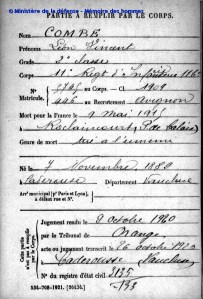 © Ministère de la défense - Mémoire des hommes
PARTIE À REMPLIR PAR LE CORPS.
Nom COMBE
Prénoms Léon Vincent
Grade 2e classe
Corps 11e Regt d'Infanterie
N° Matricule. au Corps. — Cl. 1909
446 au Recrutement Avignon
Mort pour la France le 9 mai 1915
à Roclincourt (P. de Calais)
Genre de mort tué à l'ennemi
Né le 7 Novembre 1889
à Caderousse Département Vaucluse
Arr' municipal (p' Paris et Lyon), à défaut rue et N°.
Cette partie n'est pas à remplir par le Corps.
Jugement rendu le 9 octobre 1920
par le Tribunal de Orange
acte ou jugement transcrit le 26 octobre 1920
à Caderousse Vaucluse
N° du registre d'état civil 135
534-708-1921. [26434.]